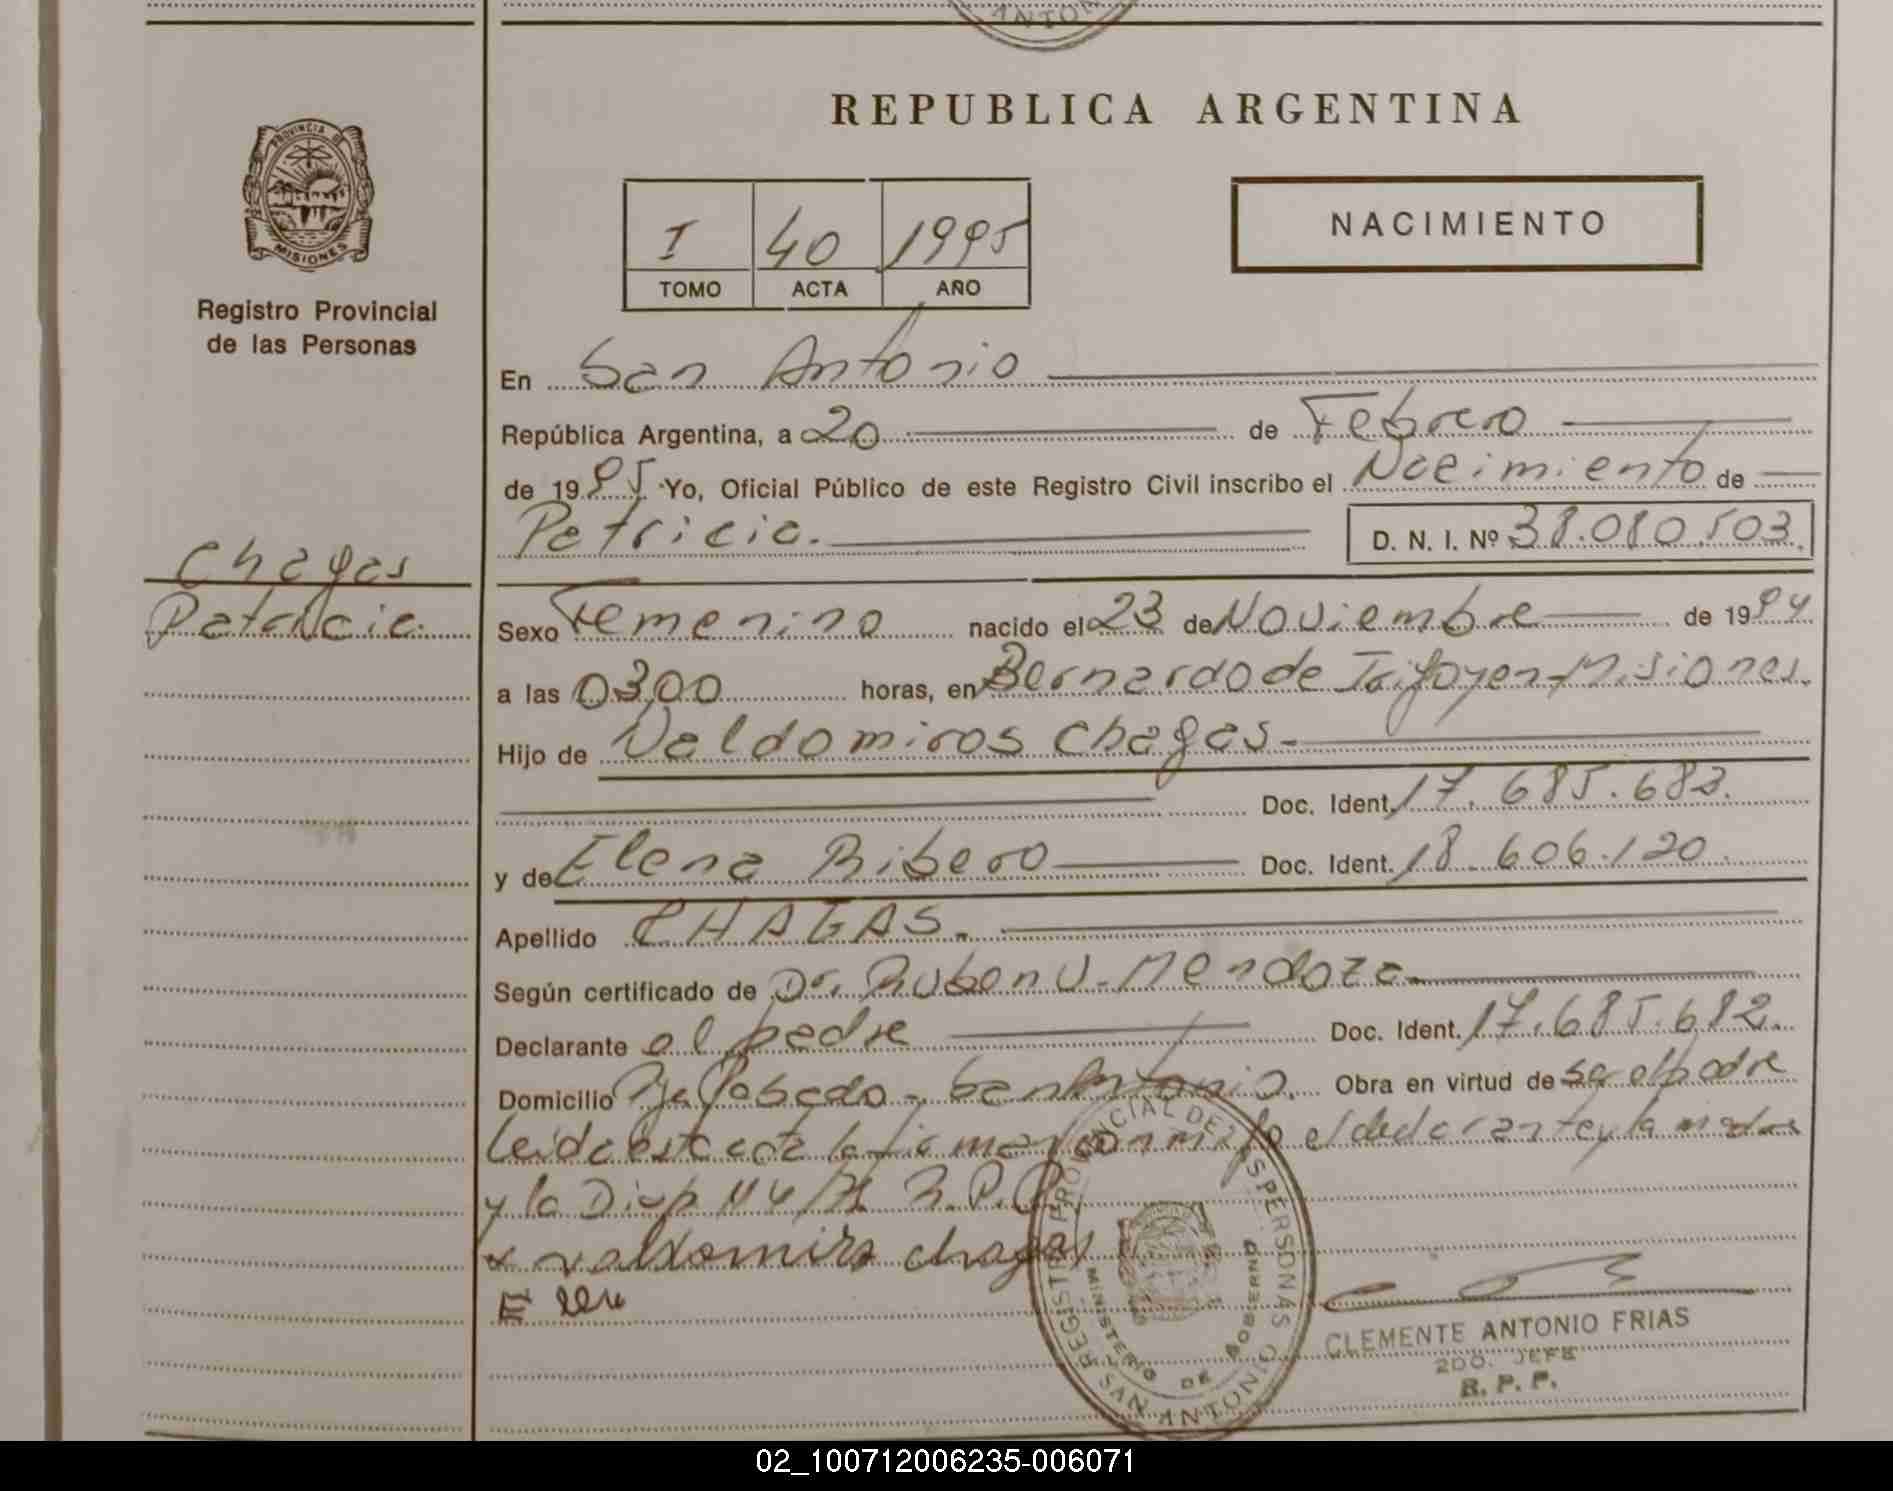 ANTON
PROVINCIA DE
MISIONES
Registro Provincial
de las Personas
Chagas
Patricia.
REPUBLICA ARGENTINA
I 40 1995
TOMO ACTA AÑO
NACIMIENTO
En San Antonio
República Argentina, a 20 de Febrero
de 1995 Yo, Oficial Público de este Registro Civil inscribo el Nacimiento de
Patricia. D. N. I. Nº 38.080.503.
Sexo Femenino nacido el 23 de Noviembre de 1994
a las 03,00 horas, en Bernardo de Irigoyen-Misiones.
Hijo de Valdomiros Chagas-
Doc. Ident. 17.685.682.
y de Elena Ribero Doc. Ident. 18.606.120.
Apellido CHAGAS.
Según certificado de Dr. Ruben U. Mendoza
Declarante el padre Doc. Ident. 17.685.682.
Domicilio San Antonio. Obra en virtud de ser el padre
Leida esta acta la firman conmigo el declarante y la madre
y la Disp R.P.P.
x valdomiro chagas
E
REGISTRO PROVINCIAL DE LAS PERSONAS
MINISTERIO DE GOBIERNO
SAN ANTONIO
CLEMENTE ANTONIO FRIAS
2DO. JEFE
R. P. P.
02_100712006235-006071